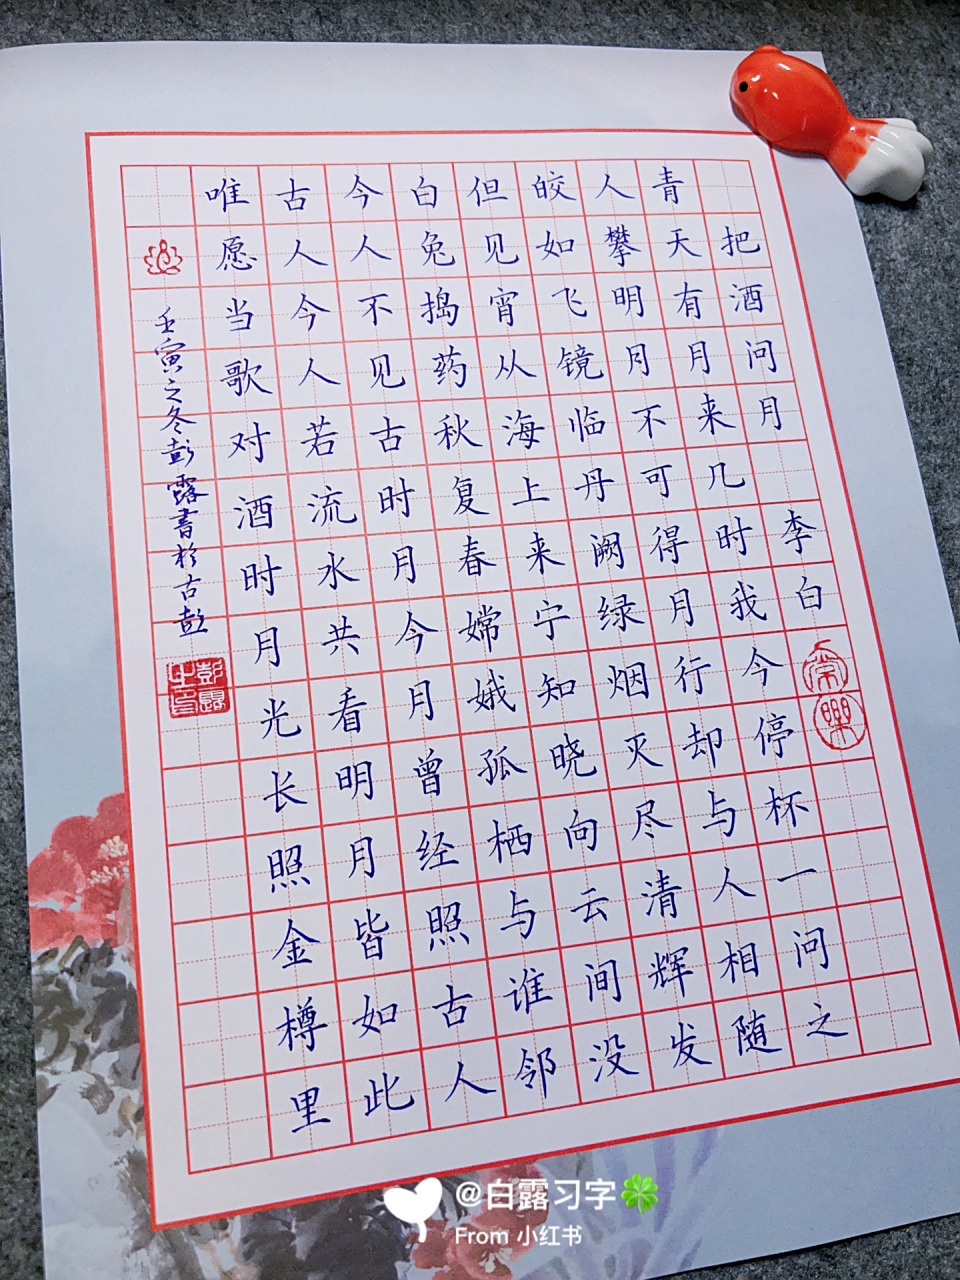 把酒问月 李白
常樂
青天有月来几时我今停杯一问之
人攀明月不可得月行却与人相随
皎如飞镜临丹阙绿烟灭尽清辉发
但见宵从海上来宁知晓向云间没
白兔捣药秋复春嫦娥孤栖与谁邻
今人不见古时月今月曾经照古人
古人今人若流水共看明月皆如此
唯愿当歌对酒时月光长照金樽里
壬寅之冬彭露書於古彭
彭露之印
@白露习字🍀
From 小红书